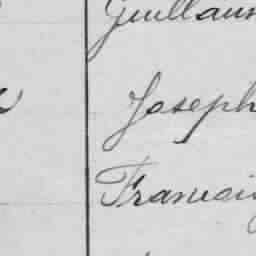 Guillaum
Joseph
Francois